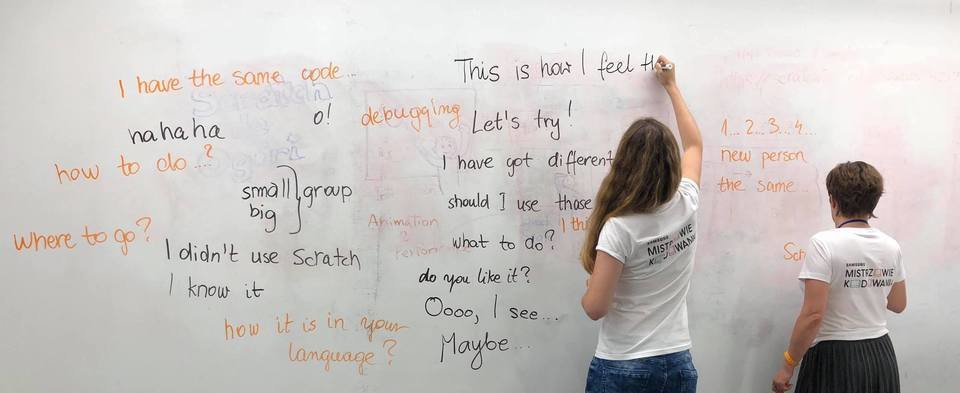 I have the same code...
o!
nahaha
how to do...?
small
big
group
where to go?
I didn't use Scratch
I know it
how it is in your
language?
This is how I feel
debugging
Let's try!
I have got different
should I use those
I thi
what to do?
do you like it?
Oooo, I see...
Maybe...
Animation
1... 2... 3... 4...
new person
the same...
SAMSUNG
MISTRZOWIE
KODOWANIA
SAMSUNG
MISTRZOWIE
KODOWANIA